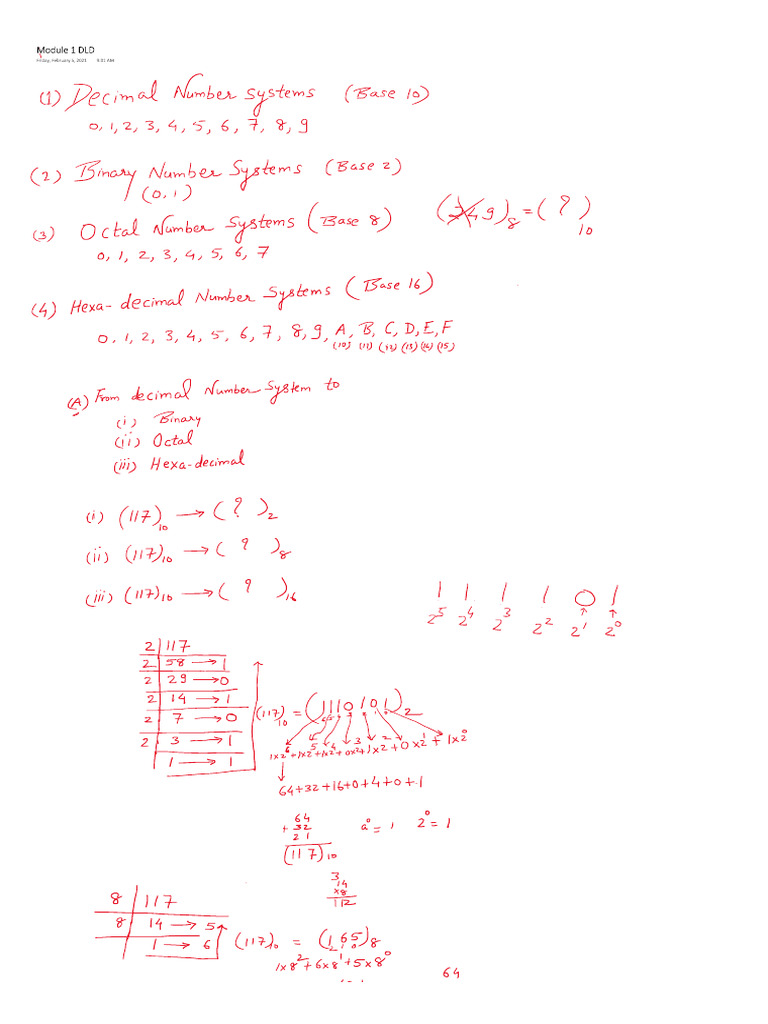 Module 1 DLD
Friday, February 5, 2021 9:01 AM
(1) Decimal Number Systems (Base 10)
0, 1, 2, 3, 4, 5, 6, 7, 8, 9
(2) Binary Number Systems (Base 2)
(0, 1)
(3) Octal Number Systems (Base 8)
0, 1, 2, 3, 4, 5, 6, 7
(749)₈ = ( ? )₁₀
(4) Hexa-decimal Number Systems (Base 16)
0, 1, 2, 3, 4, 5, 6, 7, 8, 9, A, B, C, D, E, F
(10) (11) (12) (13) (14) (15)
(A) From decimal Number System to
(i) Binary
(ii) Octal
(iii) Hexa-decimal
(i) (117)₁₀ → ( ? )₂
(ii) (117)₁₀ → ( ? )₈
(iii) (117)₁₀ → ( ? )₁₆
1 1 1 1 0 1
2⁵ 2⁴ 2³ 2² 2¹ 2⁰
2 | 117
2 | 58 → 1
2 | 29 → 0
2 | 14 → 1
2 | 7 → 0
2 | 3 → 1
1 → 1
(117)₁₀ = (1110101)₂
1x2⁶+1x2⁵+1x2⁴+0x2³+1x2²+0x2¹+1x2⁰
64+32+16+0+4+0+1
64
+ 32
21
(117)₁₀
a⁰ = 1 2⁰ = 1
3
14
x8
112
8 | 117
8 | 14 → 5
1 → 6
(117)₁₀ = (165)₈
2 1 0
1x8²+6x8¹+5x8⁰
64